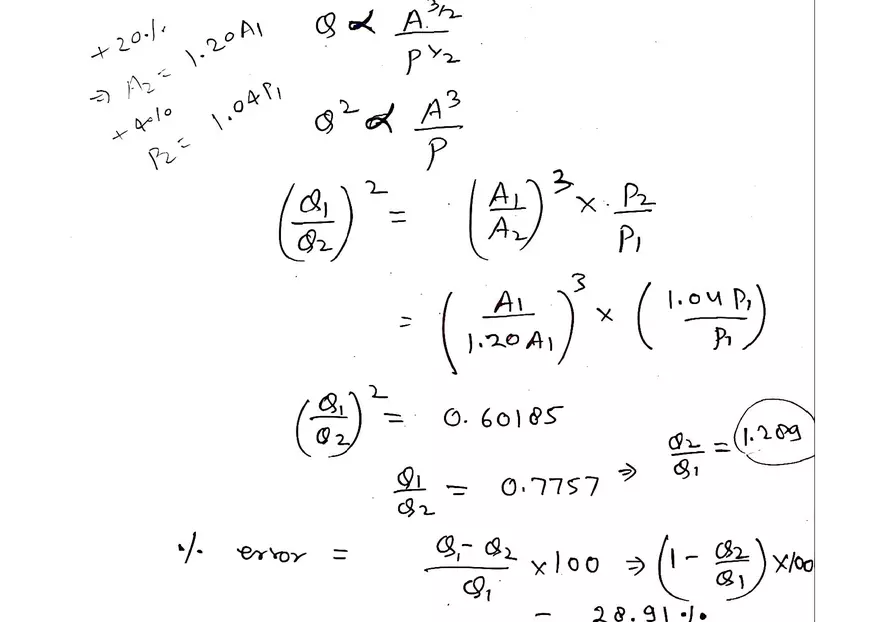 +20·/.
⇒ A2 = 1.20A1
+4%
P2 = 1.04P1
Q ∝ A^3/2 / P^1/2
Q^2 ∝ A^3 / P
(Q1/Q2)^2 = (A1/A2)^3 × P2/P1
= (A1/1.20A1)^3 × (1.04P1/P1)
(Q1/Q2)^2 = 0.60185
Q1/Q2 = 0.7757 ⇒ Q2/Q1 = 1.289
·/. error = (Q1-Q2)/Q1 ×100 ⇒ (1 - Q2/Q1) ×100
= 28.91·/.